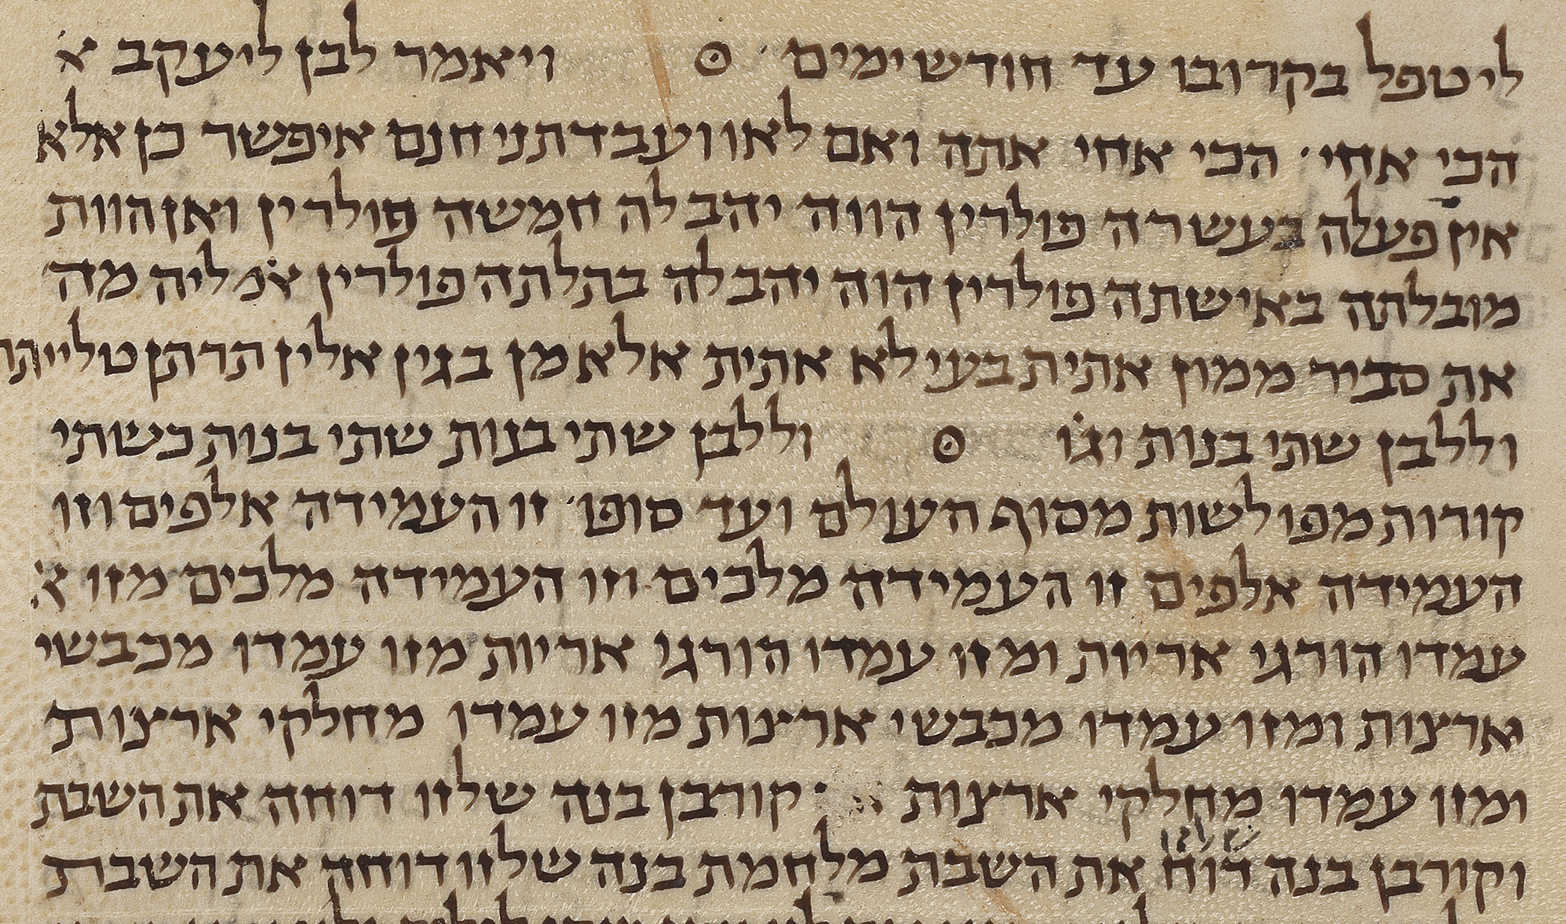 ליטפל בקרובו עד חודש ימים ׄ ⊙ ויאמר לבן ליעקב א׳
הכי אחי ׄ הכי אחי אתה ואם לאו ועבדתני חנם איפשר כן אלא
אין פעלה בעשרה פולרין הווה יהב לה חמשה פולרין ואין הוות
מובלתה באישתה פולרין הוה יהב לה בתלתה פולרין א׳מ׳ ליה מה
את סביר ממון אתית בעי לא אתית אלא מן בגין אלין תרתן טלייתה
וללבן שתי בנות וג׳ו ⊙ וללבן שתי בנות שתי בנות כשתי
קורות מפולשות מסוף העולם ועד סופו ׄ זו העמידה אלפים וזו
העמידה אלפים זו העמידה מלכים וזו העמידה מלכים מזו א׳
עמדו הורגי אריות ומזו עמדו הורגי אריות מזו עמדו מכבשי
ארצות ומזו עמדו מכבשי ארצות מזו עמדו מחלקי ארצות
ומזו עמדו מחלקי ארצות ׄ קורבן בנה שלזו דוחה את השבת
וקורבן בנה שלזו דוח׳ את השבת מלחמת בנה שלזו דוחה את השבת